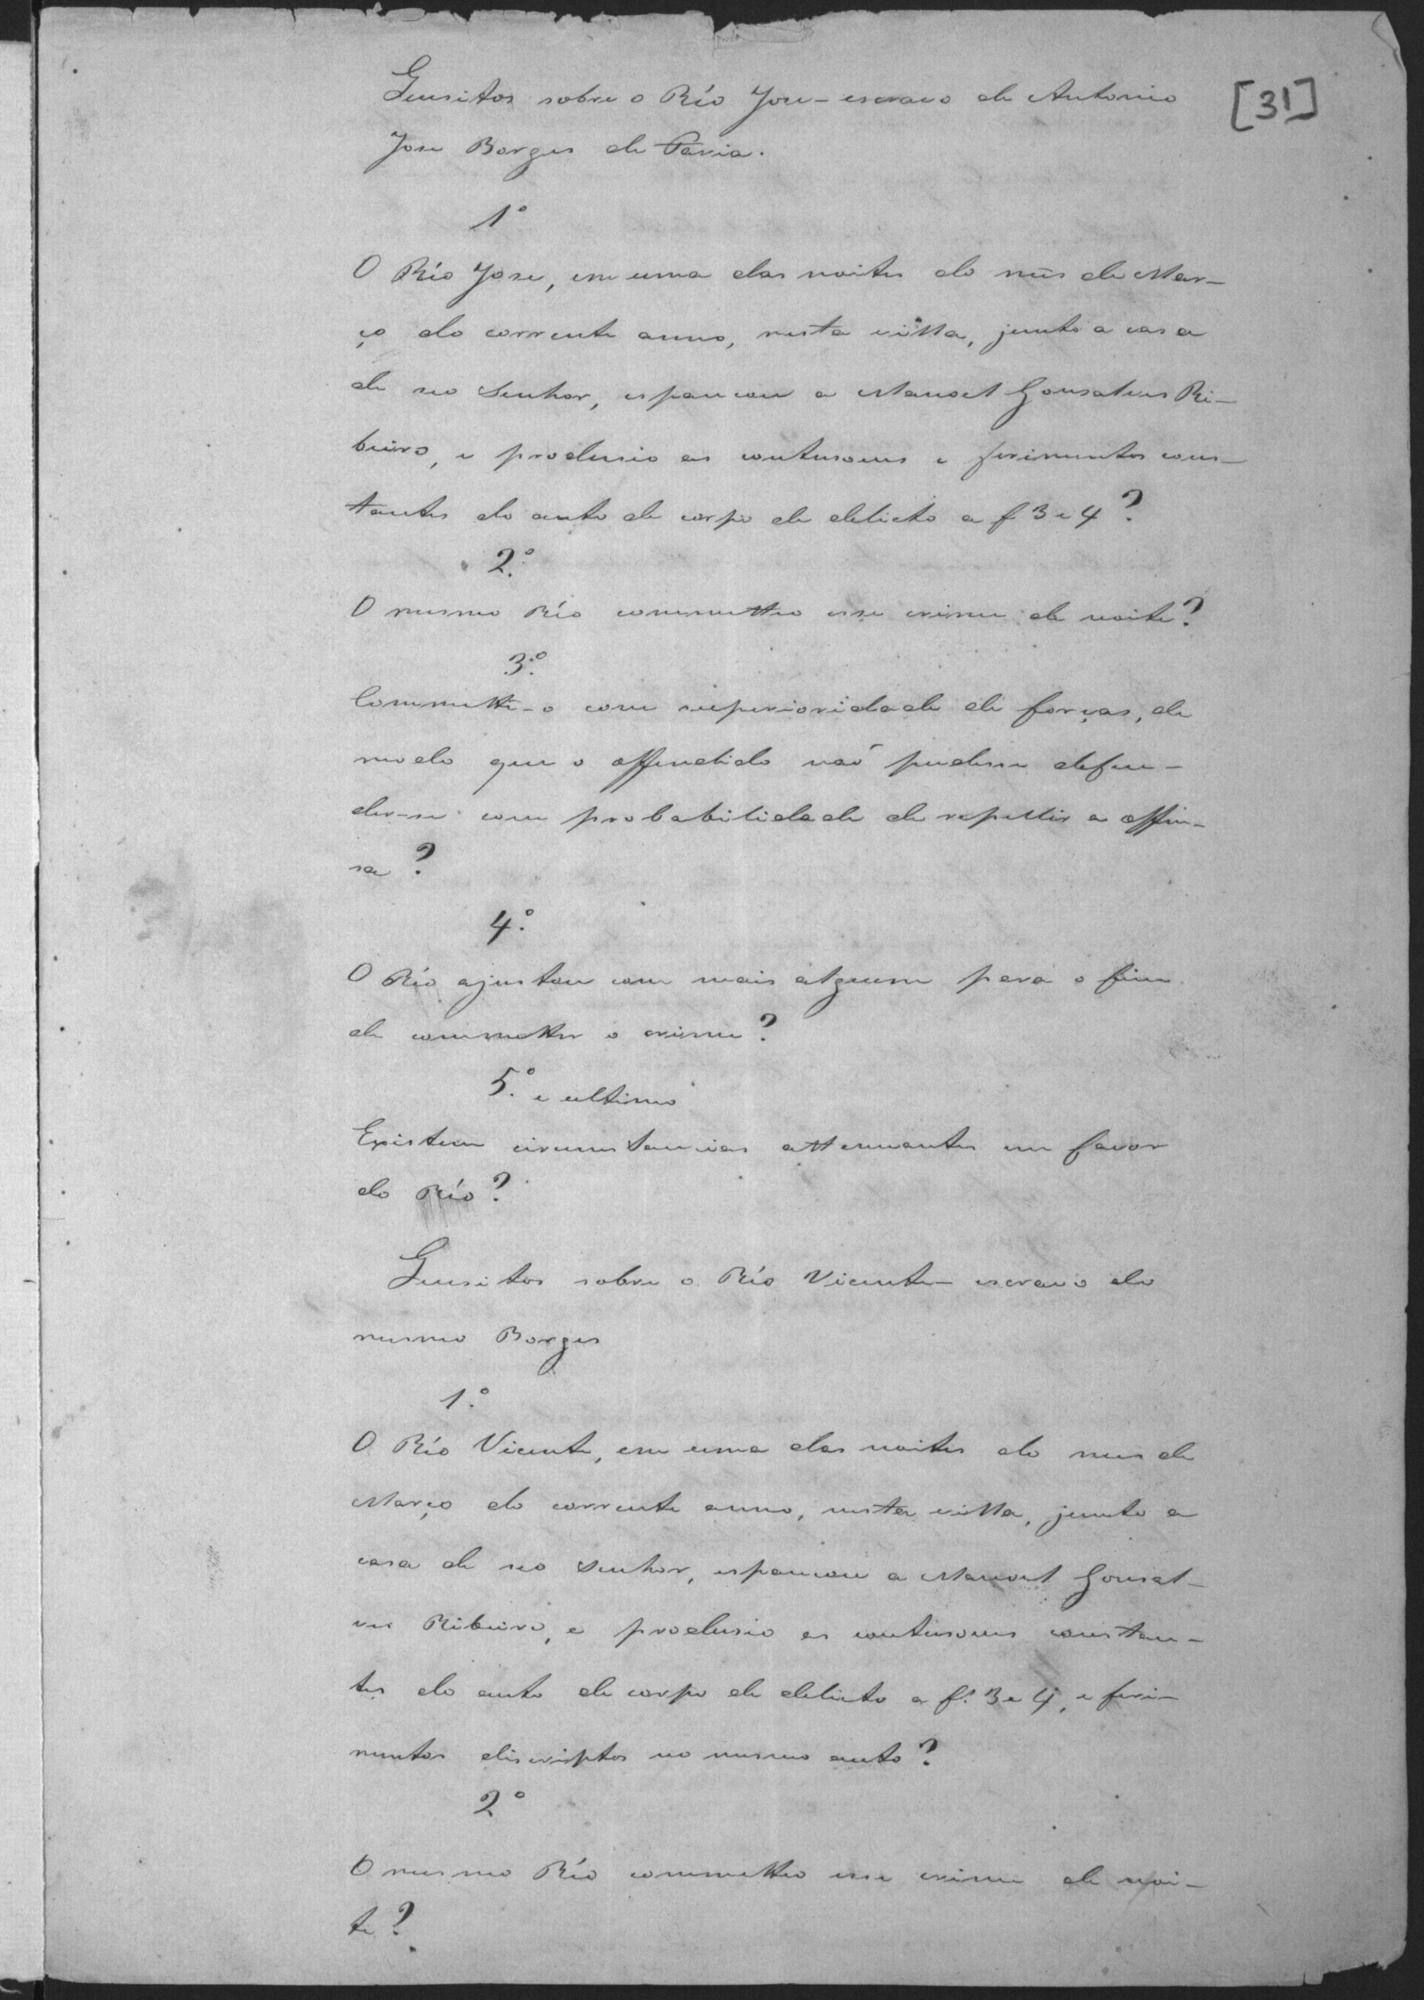 Quesitos sobre o Réo Jose - escravo de Antonio
[31]
Jose Borges de Faria.
1º
O Réo Jose, em uma das noites do mes de Mar-
ço do corrente anno, nesta villa, junto a casa
de seo Senhor, espancou a Manoel Gonsalves Ri-
beiro, e produsio as contusoens e ferimentos cons-
tantes do auto de corpo de delicto a f 3 e 4?
2.º
O mesmo Réo commetteo esse crime de noite?
3.º
Commette-o com superioridade de forças, de
modo que o offendido naõ pudesse defen-
der-se com probabilidade de repellir a offen-
sa?
4.º
O Réo ajustou com mais alguem para o fim
de commetter o crime?
5.º e ultimo
Existem circunstancias attenuantes em favor
do Réo?
Quesitos sobre o Réo Vicente - escravo do
mesmo Borges
1.º
O Réo Vicente, em uma das noites do mes de
Março do corrente anno, nesta villa, junto a
casa de seo Senhor, espancou a Manoel Gonsal-
ves Ribeiro, e produsio as contusoens constan-
tes do auto de corpo de delicto a f. 3 e 4, e feri-
mentos discriptos no mesmo auto?
2º
O mesmo Réo commetteo esse crime de noi-
te?